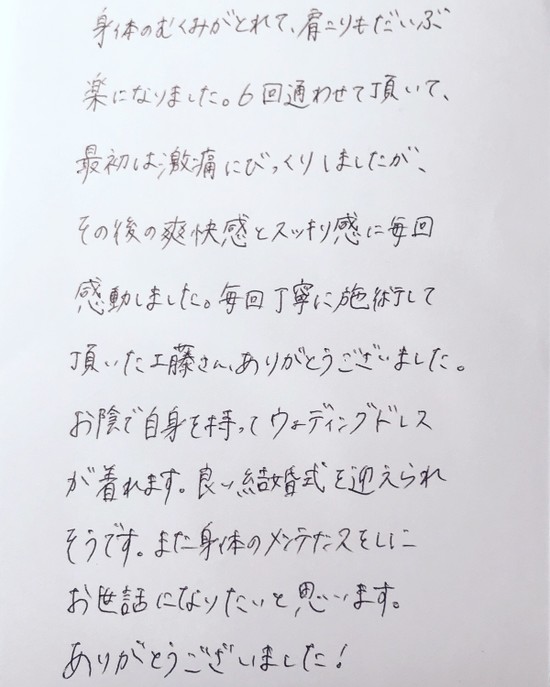 身体のむくみがとれて、肩こりもだいぶ
楽になりました。6回通わせて頂いて、
最初は激痛にびっくりしましたが、
その後の爽快感とスッキリ感に毎回
感動しました。毎回丁寧に施術して
頂いた工藤さん、ありがとうございました。
お陰で自身を持ってウェディングドレス
が着れます。良い結婚式を迎えられ
そうです。また身体のメンテナンスをしに
お世話になりたいと思います。
ありがとうございました!